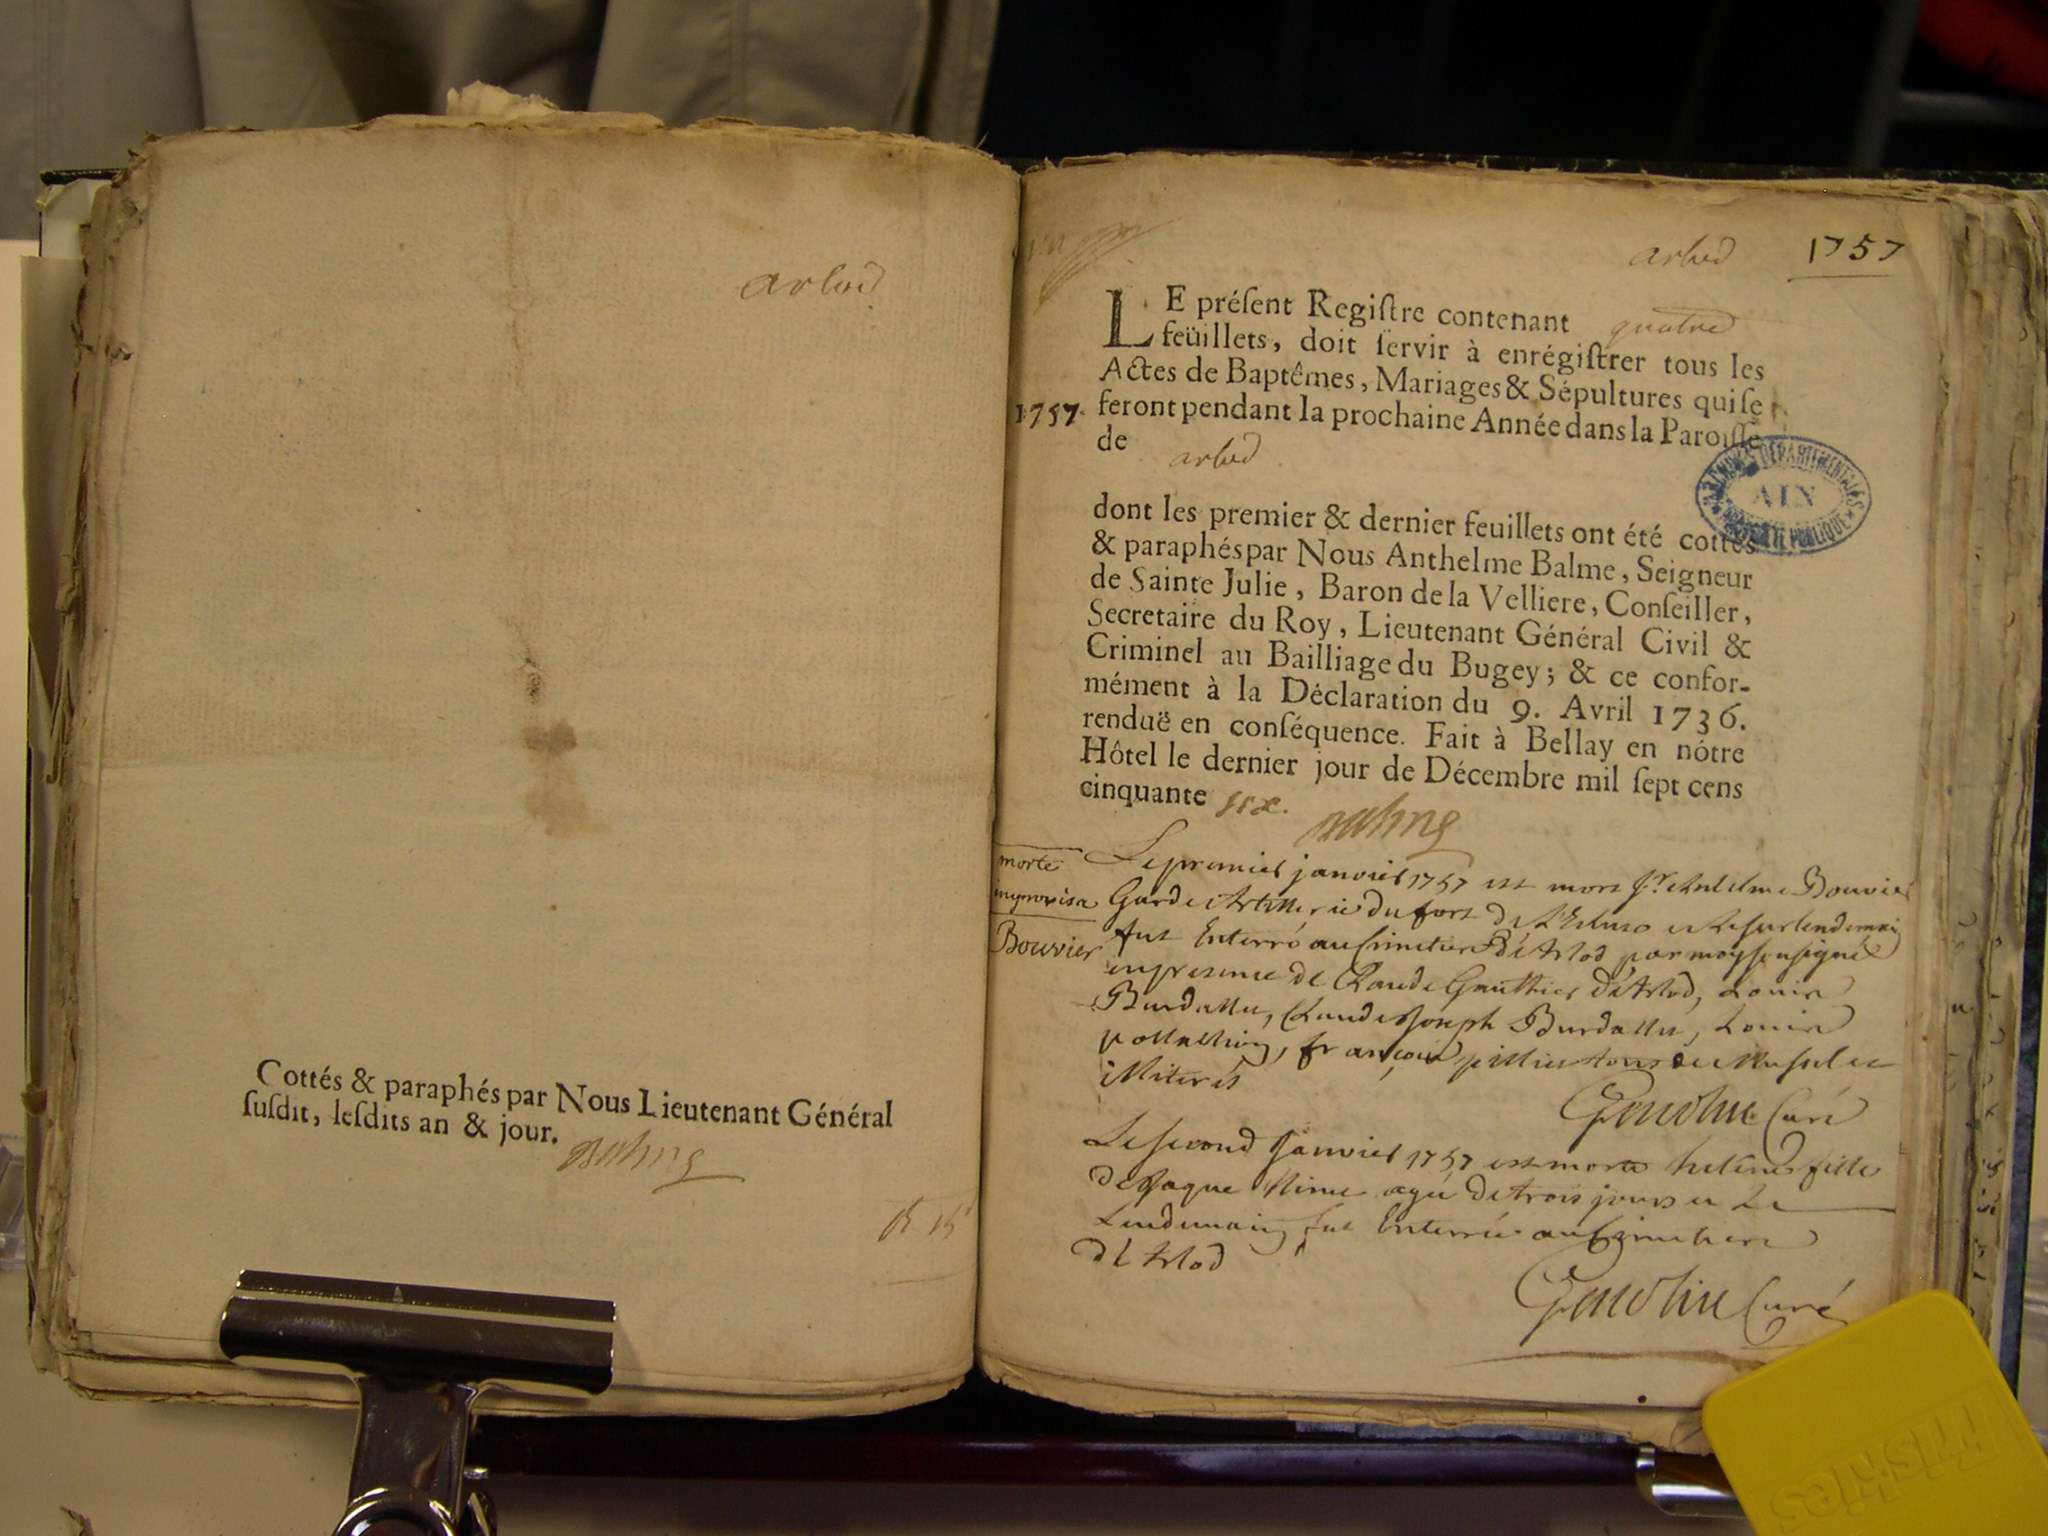 arlod
Cottés & paraphés par Nous Lieutenant Général
ſuſdit, leſdits an & jour.
Balme
arlod 1757
LE préſent Regiſtre contenant quatre
feüillets, doit ſervir à enrégiſtrer tous les
Actes de Baptêmes, Mariages & Sépultures qui ſe
1757. feront pendant la prochaine Année dans la Paroiſſe
de arlod
ARCHIVES DÉPARTEMENTALES
AIN
dont les premier & dernier feuillets ont été cottés
& paraphés par Nous Anthelme Balme, Seigneur
de Sainte Julie, Baron de la Velliere, Conſeiller,
Secretaire du Roy, Lieutenant Général Civil &
Criminel au Bailliage du Bugey; & ce confor-
mément à la Déclaration du 9. Avril 1736.
renduë en conſéquence. Fait à Bellay en nôtre
Hôtel le dernier jour de Décembre mil ſept cens
cinquante six.
Balme
morte
improvisa
Bouvier
Le premier janvier 1757 est mort Sr Anthelme Bouvier
Garde Artillerie du fort de l'Ecluse et le surlendemain
fut Enterré au Cimetiere d'Arlod par moy soussigné
en presence de Claude Gauthier d'Arlod, Louis
Burdallet, Claude Joseph Burdallet, Louis
françois tous de Musel et
illiterés
Genolin Curé
Le second Janvier 1757 est morte helene fille
de Jaque agée de trois jours et le
Lendemain fut Enterrée au Cimetiere
d'Arlod
Genolin Curé
Triskies